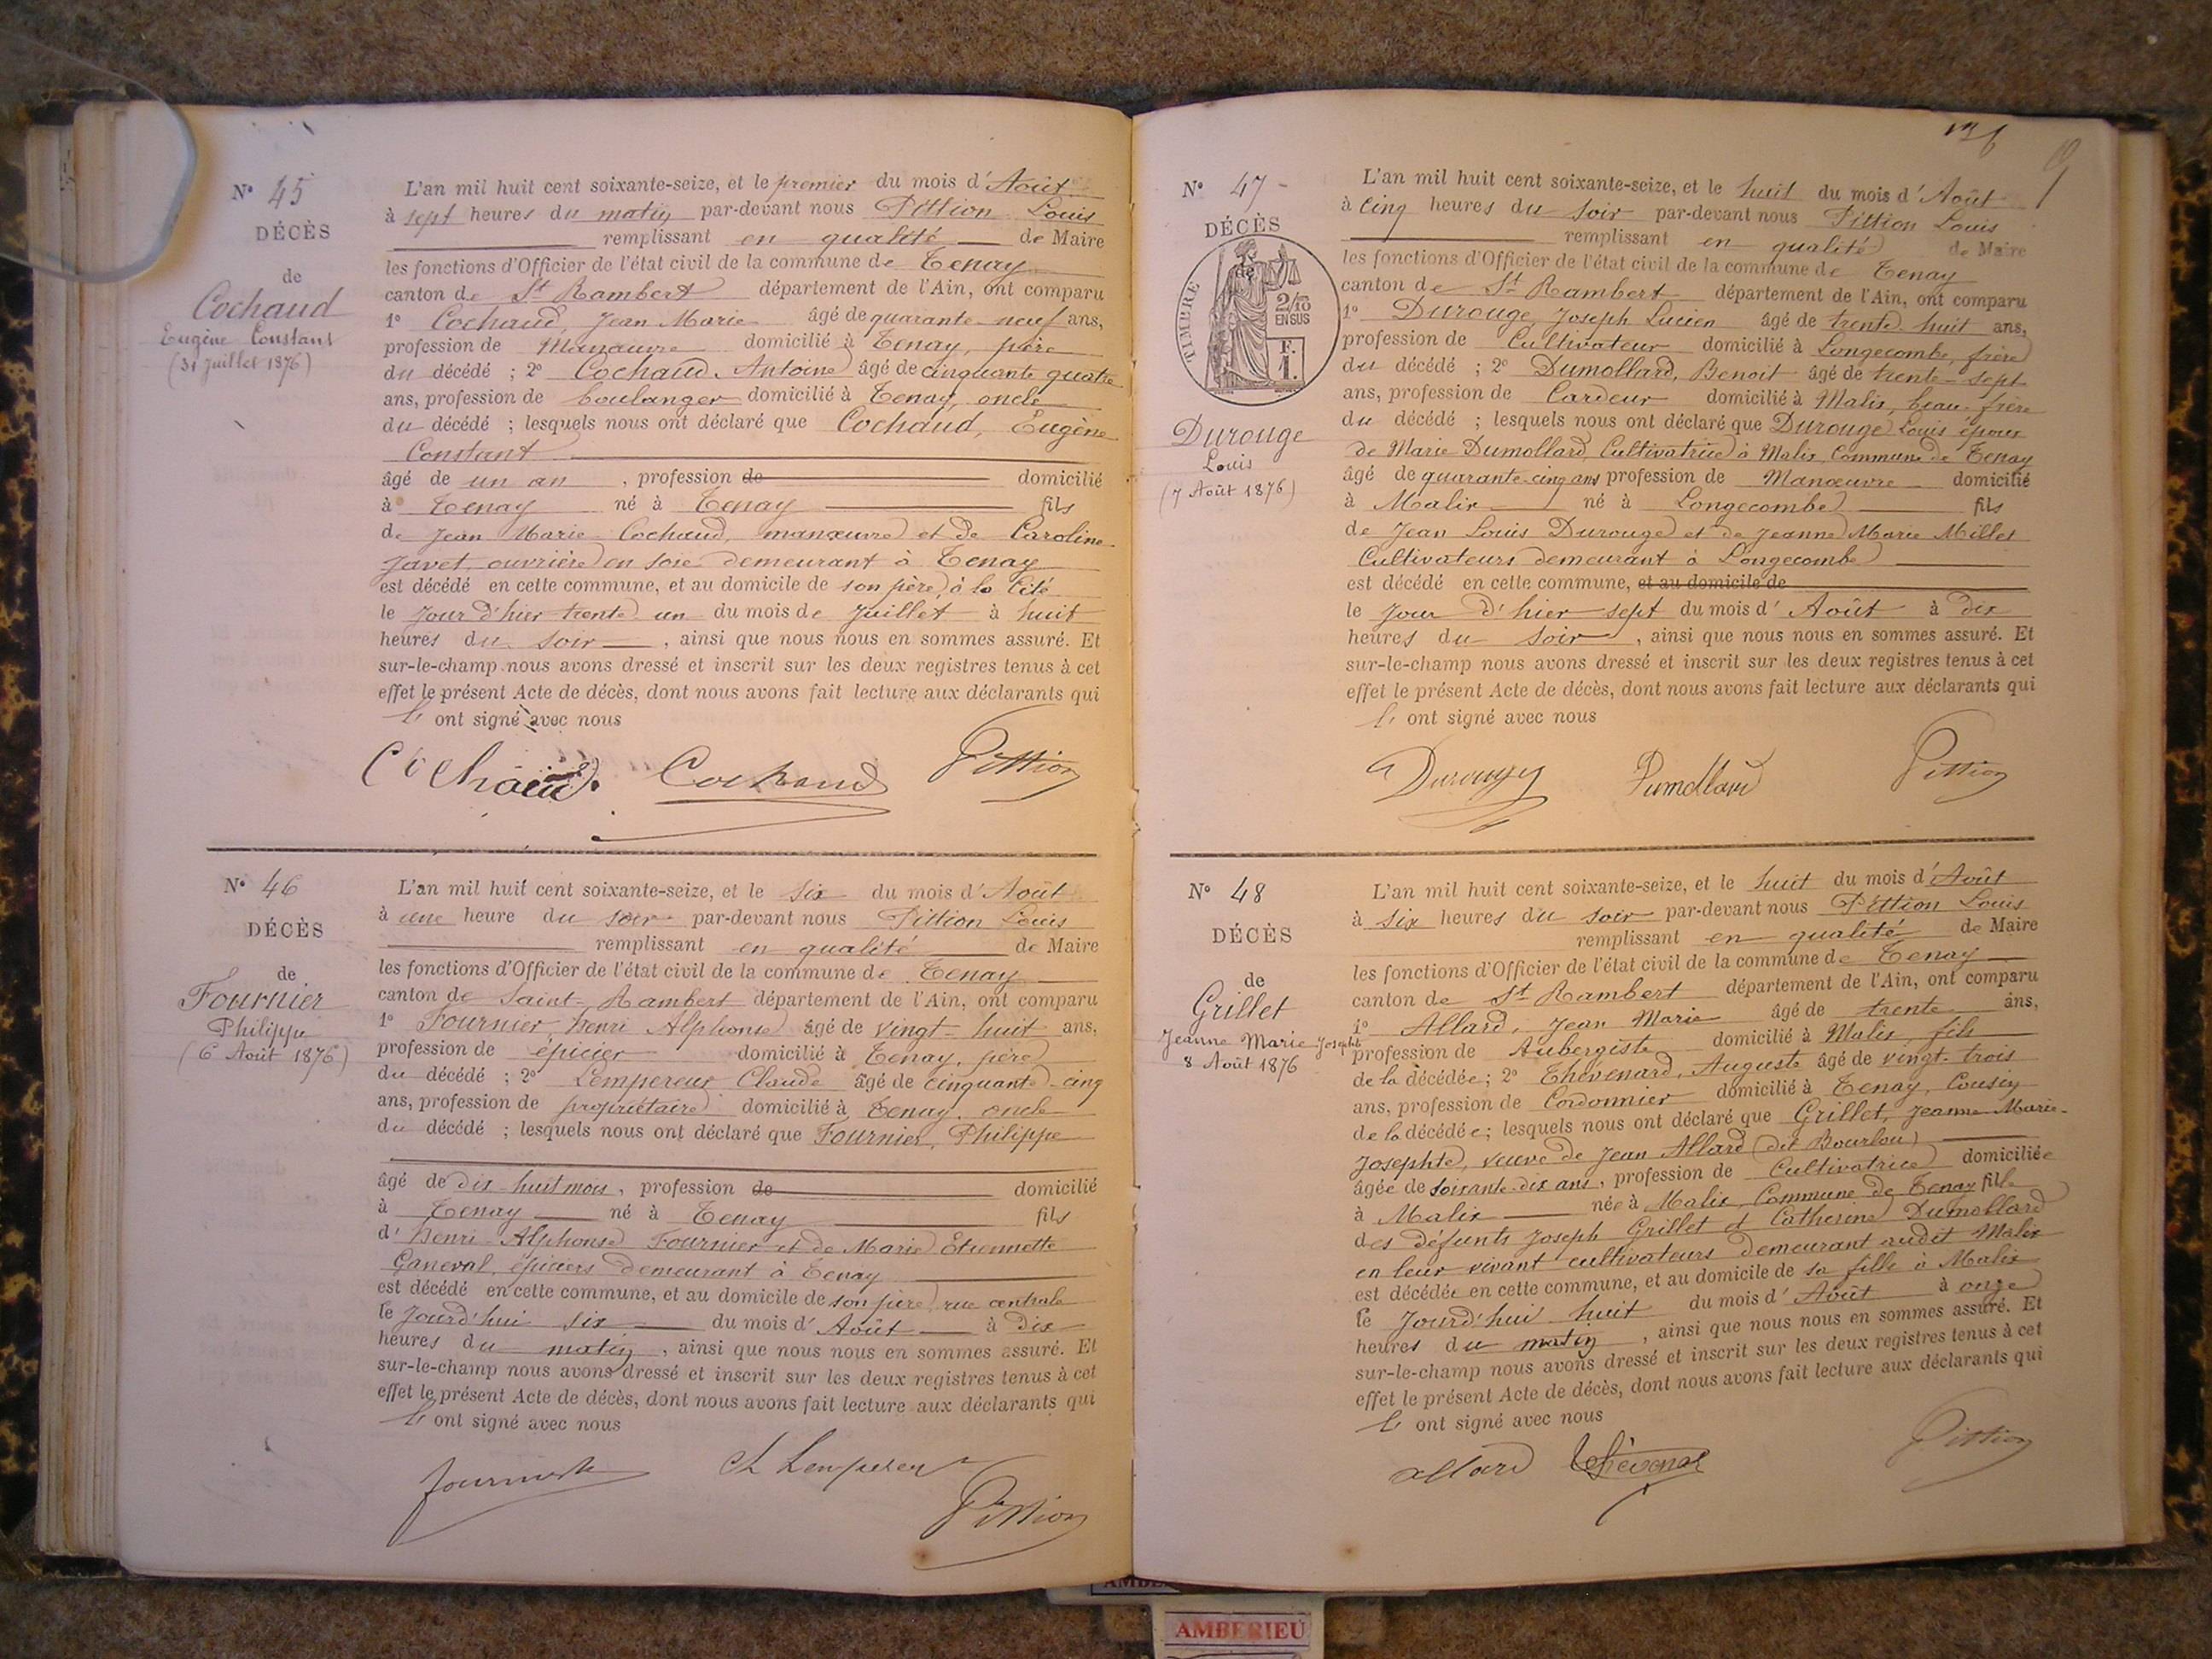 N° 45
DÉCÈS
de
Cochaud
Eugène Constant
(31 Juillet 1876)
L'an mil huit cent soixante-seize, et le premier du mois d'Août
à sept heures du matin par-devant nous Pittion Louis
remplissant en qualité de Maire
les fonctions d'Officier de l'état civil de la commune de Tenay
canton de St Rambert département de l'Ain, ont comparu
1° Cochaud, Jean Marie âgé de quarante-neuf ans,
profession de Manœuvre domicilié à Tenay, père
du décédé ; 2° Cochaud, Antoine âgé de cinquante quatre
ans, profession de boulanger domicilié à Tenay, oncle
du décédé ; lesquels nous ont déclaré que Cochaud, Eugène
Constant
âgé de un an , profession de domicilié
à Tenay né à Tenay fils
de Jean Marie Cochaud, manœuvre et de Caroline
Javet, ouvrière en soie demeurant à Tenay
est décédé en cette commune, et au domicile de son père, à la Cité
le Jour d'hier trente un du mois de Juillet à huit
heures du soir , ainsi que nous nous en sommes assuré. Et
sur-le-champ nous avons dressé et inscrit sur les deux registres tenus à cet
effet le présent Acte de décès, dont nous avons fait lecture aux déclarants qui
l' ont signé avec nous
Cochaud Cochaud Pittion
N° 46
DÉCÈS
de
Fournier
Philippe
(6 Août 1876)
L'an mil huit cent soixante-seize, et le six du mois d'Août
à une heure du soir par-devant nous Pittion Louis
remplissant en qualité de Maire
les fonctions d'Officier de l'état civil de la commune de Tenay
canton de Saint-Rambert département de l'Ain, ont comparu
1° Fournier, Henri Alphonse âgé de vingt-huit ans,
profession de épicier domicilié à Tenay, père
du décédé ; 2° Lempereur Claude âgé de cinquante-cinq
ans, profession de propriétaire domicilié à Tenay, oncle
du décédé ; lesquels nous ont déclaré que Fournier, Philippe
âgé de dix-huit mois , profession de domicilié
à Tenay né à Tenay fils
d'Henri-Alphonse Fournier et de Marie Etiennette
Ganeval, épiciers demeurant à Tenay
est décédé en cette commune, et au domicile de son père, rue centrale
le Jourd'hui six du mois d'Août à dix
heures du matin , ainsi que nous nous en sommes assuré. Et
sur-le-champ nous avons dressé et inscrit sur les deux registres tenus à cet
effet le présent Acte de décès, dont nous avons fait lecture aux déclarants qui
l' ont signé avec nous
Pittion
N° 47
DÉCÈS
de
TIMBRE
2/10
EN SUS
F.
1.
Durouge
Louis
(7 Août 1876)
L'an mil huit cent soixante-seize, et le huit du mois d'Août
à cinq heures du soir par-devant nous Pittion Louis
remplissant en qualité de Maire
les fonctions d'Officier de l'état civil de la commune de Tenay
canton de St Rambert département de l'Ain, ont comparu
1° Durouge Joseph Lucien âgé de trente-huit ans,
profession de Cultivateur domicilié à Longecombe, frère
du décédé ; 2° Dumollard, Benoit âgé de trente-sept
ans, profession de Cardeur domicilié à Malix, beau-frère
du décédé ; lesquels nous ont déclaré que Durouge Louis époux
de Marie Dumollard, Cultivatrice à Malix, Commune de Tenay
âgé de quarante-cinq ans profession de Manœuvre domicilié
à Malix né à Longecombe fils
de Jean Louis Durouge et de Jeanne Marie Millet
Cultivateurs demeurant à Longecombe
est décédé en cette commune, et au domicile de
le Jour d'hier sept du mois d'Août à dix
heures du soir , ainsi que nous nous en sommes assuré. Et
sur-le-champ nous avons dressé et inscrit sur les deux registres tenus à cet
effet le présent Acte de décès, dont nous avons fait lecture aux déclarants qui
l' ont signé avec nous
Durouge Dumollard Pittion
N° 48
DÉCÈS
de
Grillet
Jeanne Marie Josephte
8 Août 1876
L'an mil huit cent soixante-seize, et le huit du mois d'Août
à six heures du soir par-devant nous Pittion Louis
remplissant en qualité de Maire
les fonctions d'Officier de l'état civil de la commune de Tenay
canton de St Rambert département de l'Ain, ont comparu
1° Allard, Jean Marie âgé de trente ans,
profession de Aubergiste domicilié à Malix, fils
de la décédée; 2° Thévenard, Auguste âgé de vingt-trois
ans, profession de Cordonnier domicilié à Tenay, Cousin
de la décédée; lesquels nous ont déclaré que Grillet, Jeanne-Marie-
Josephte, veuve de Jean Allard (dit Bourlou)
âgée de soixante-dix ans, profession de Cultivatrice domiciliée
à Malix née à Malix, Commune de Tenay fille
des défunts Joseph Grillet et Catherine Dumollard
en leur vivant cultivateurs demeurant audit Malix
est décédée en cette commune, et au domicile de sa fille à Malix
le Jourd'hui huit du mois d'Août à onze
heures du matin , ainsi que nous nous en sommes assuré. Et
sur-le-champ nous avons dressé et inscrit sur les deux registres tenus à cet
effet le présent Acte de décès, dont nous avons fait lecture aux déclarants qui
l' ont signé avec nous
allard Thévenard Pittion
AMBERIEU